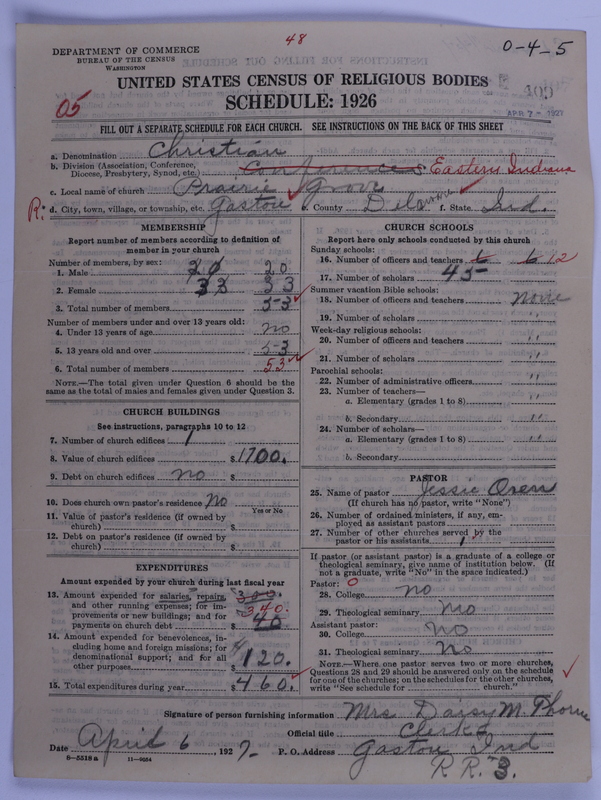 48
0-4-5
DEPARTMENT OF COMMERCE
BUREAU OF THE CENSUS
WASHINGTON
UNITED STATES CENSUS OF RELIGIOUS BODIES
SCHEDULE: 1926
05
APR 7 - 1927
FILL OUT A SEPARATE SCHEDULE FOR EACH CHURCH. SEE INSTRUCTIONS ON THE BACK OF THIS SHEET
a. Denomination Christian
b. Division (Association, Conference, Diocese, Presbytery, Synod, etc.) Conference Eastern Indiana
c. Local name of church Prairie Grove
R. d. City, town, village, or township, etc. Gaston e. County Delaware f. State Ind.
MEMBERSHIP
Report number of members according to definition of
member in your church
Number of members, by sex:
1. Male 20 20
2. Female 33 33
3. Total number of members 53
Number of members under and over 13 years old:
4. Under 13 years of age no
5. 13 years old and over 53
6. Total number of members 53
NOTE.—The total given under Question 6 should be
same as the total of males and females given under Question 3.
CHURCH BUILDINGS
See instructions, paragraphs 10 to 12
7. Number of church edifices 1
8. Value of church edifices $1700.
9. Debt on church edifices no $
10. Does church own pastor's residence? No
Yes or No
11. Value of pastor's residence (if owned by
church) $
12. Debt on pastor's residence (if owned by
church) $
EXPENDITURES
Amount expended by your church during last fiscal year
13. Amount expended for salaries, repairs, 300.
and other running expenses; for im- 340.
provements or new buildings; and for
payments on church debt $ 40
14. Amount expended for benevolences, in-
cluding home and foreign missions; for
denominational support; and for all
other purposes $120.
15. Total expenditures during year $460.
CHURCH SCHOOLS
Report here only schools conducted by this church
Sunday schools:
16. Number of officers and teachers 6 6 12
17. Number of scholars 45
Summer vacation Bible schools:
18. Number of officers and teachers none
19. Number of scholars "
Week-day religious schools:
20. Number of officers and teachers "
21. Number of scholars "
Parochial schools:
22. Number of administrative officers "
23. Number of teachers—
a. Elementary (grades 1 to 8) "
b. Secondary "
24. Number of scholars—
a. Elementary (grades 1 to 8) "
b. Secondary
PASTOR
25. Name of pastor Jessie Oren
(If church has no pastor, write "None")
26. Number of ordained ministers, if any, em-
ployed as assistant pastors
27. Number of other churches served by the
pastor or his assistants 1
If pastor (or assistant pastor) is a graduate of a college or
theological seminary, give name of institution below. (If
not a graduate, write "No" in the space indicated.)
Pastor: 0
28. College no
29. Theological seminary no
Assistant pastor:
30. College No
31. Theological seminary No
NOTE.—Where one pastor serves two or more churches,
Questions 28 and 29 should be answered only on the schedule
for one of the churches; on the schedules for the other churches,
write "See schedule for church."
Signature of person furnishing information Mrs. Daisy M. Thorne
Official title Clerk
Date April 6, 1927 P. O. Address Gaston Ind
R R. 3.
8—5518 a 11—9054